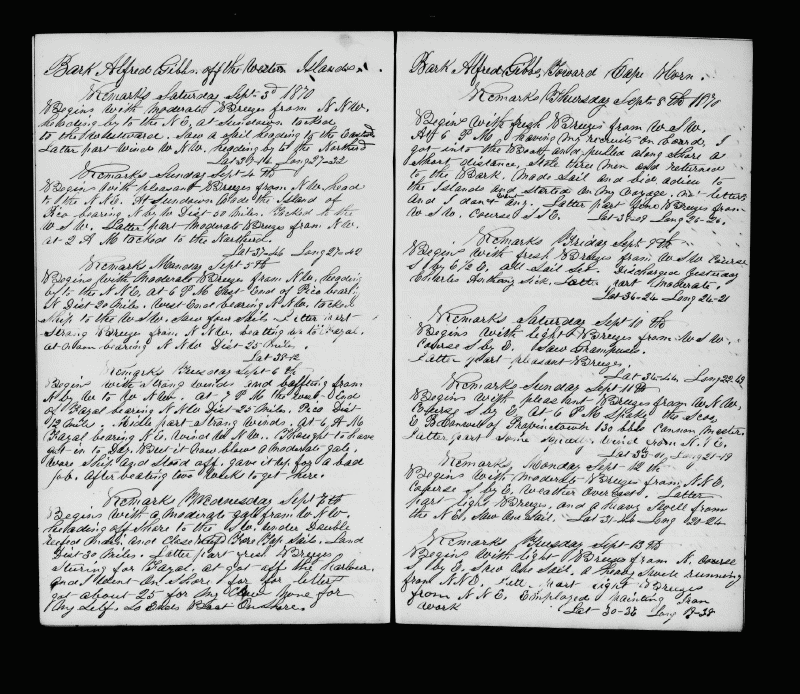 Bark Alfred Gibbs. off the Western Islands.
Remarks Saturday Sept 3d 1870
Begins with moderate Breezes from N.N.W.
heading by to the N.E, at Sundown tacked
to the Westward. Saw a sail heading to the Eastward
Latter part wind W N.W. heading by to the Northerd
Lat 39-14 Long 27-22
Remarks Sunday Sept 4 th
Begins with pleasant Breezes from N.W. head
to the N.N.E. At Sundown Made the Island of
Pico bearing N by W Dist 50 Miles. Tacked to the
W S W. Latter part Moderate Breezes from N.W.
at 2 A M tacked to the Northerd.
Lat 37-44 Long 27-42
Remarks Monday Sept 5th
Begins with Moderate Breezes from N.W. heading
by to the N.N.E, at 6 P M East End of Pico bearing
N Dist 20 Miles. West End bearing N N.W. tacked
Ship to the W S W. Saw four Sails. Latter part
Strong Breezes from N.N.W. beating up to Fayal.
at Noon bearing N N W Dist 25 Miles.
Lat 38-12
Remarks Tuesday Sept 6 th
Begins with Strang winds and baffling from
N by W to W N.W. at 7 P M the West End
of Fayal bearing N N W Dist 25 Miles. Pico Dist
12 Miles. Middle part Strang Winds. At 6 A M
Fayal bearing N.E. Wind W N.W. Thought to have
got in to Day. But it now blows a Moderate gale.
Wore Ship and Stood off. gave it up for a bad
job. After beating two Weeks to get here.
Remarks Wednesday Sept 7 th
Begins with a Moderate gale from W N.W.
Heading off Shore to the S W. under Double
reefed and Close reefed Fore Top Sails. Land
Dist 30 Miles. Latter part fresh Breezes
Steering for Fayal, at got off the harbor,
and Went On Shore for for letters
got about 25 for My Crew None for
My Self. So Ends Boat On Shore.
Bark Alfred Gibbs, Toward Cape Horn.
Remarks Thursday Sept 8 th 1870
Begins with fresh Breezes from W S W.
At 6 P M. having My recruits on board. I
got into the Boat, and pulled along Shore a
Short distance, Stole three Men and returned
to the Bark. Made Sail and bid adieu to
the Islands and Started on My Voyage. No letters
And I dan't any. Latter part Breezes from
W S W. Course S S E. Lat 37-07 Long 25-26.
Remarks Friday Sept 9 th
Begins with fresh Breezes from W S W Course
S by E 1/2 E. All Sail Set. Discharged Yesterday
Charles Anthony Sick. Latter part Moderate.
Lat 36-24 Long 24-21
Remarks Saturday Sept 10 th
Begins with light Breezes from W S W.
Course S by E. Saw Grampuses.
Latter part pleasant Breezes.
Lat 34-44 Long 22-49
Remarks Sunday Sept 11 th
Begins with pleasant Breezes from W N.W.
Course S by E. At 6 P M Spoke the
E B Conwell of Provincetown 130 bbls Master.
Latter part Wind from N.N.E.
Lat 33-01 Long 21-19
Remarks, Monday Sept 12 th
Begins with Moderate Breezes from N.N.E.
Course S by E. Weather Overcast. Latter
part light Breezes, and a heavy Swell from
the N.E. Saw One Sail. Lat 31-44 Long 20-24
Remarks Tuesday Sept 13 th
Begins with light Breezes from N. Course
S by E. Saw One Sail. A heavy Swell running
from N N E. Latter part light Breezes
from N N E. Employed painting
Work Lat 30-36 Long 19-38